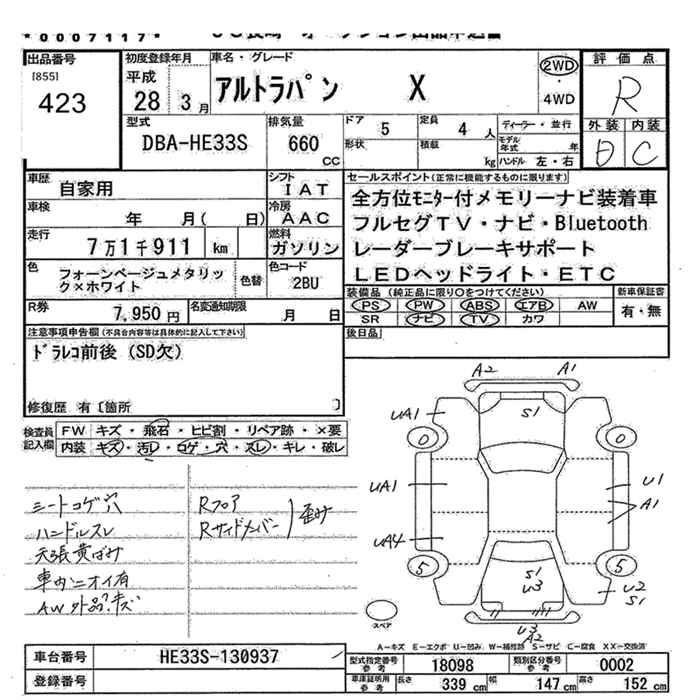 *0007117*
出品番号
[855]
423
初度登録年月
平成
28 3月
車名・グレード
アルトラパン X
2WD
・
4WD
評価点
R
外装 内装
C
型式
DBA-HE33S
排気量
660
CC
ドア 5
形状
定員 4 人
積載 kg
ディーラー・並行
モデル年式 年
ハンドル 左・右
車歴
自家用
シフト
IAT
車検
年 月( 日)
冷房
AAC
走行
7万1千911 km
燃料
ガソリン
色
フォーンベージュメタリッ
ク×ホワイト
色替
色コード
2BU
R券
7,950円
名変通知期限
月 日
セールスポイント(正常に機能するものに限ります)
全方位モニター付メモリーナビ装着車
フルセグTV・ナビ・Bluetooth
レーダーブレーキサポート
LEDヘッドライト・ETC
装備品(純正品に限り○をつけてください)
PS PW ABS エアB AW
SR ナビ TV カワ
新車保証書
有・無
後日品
注意事項申告欄(不具合内容等は具体的に記入して下さい)
ドラレコ前後(SD欠)
修復歴 有〔箇所 〕
検査員
記入欄
FW キズ・飛石・ヒビ割・リペア跡・×要
内装 キズ・汚レ・コゲ・穴・スレ・キレ・破レ
シートコゲ穴
ハンドルスレ
天張黄ばみ
車内ニオイ有
AW外品.キズ
Rフロア
Rサイドメンバー
歪み
A2 A1
UA1 S1
0 0
UA1 U1
A1
UA4
5 5
S1
U3
U2
S1
U3
A2
スペア
A-キズ E-エクボ U-凹み W-補修跡 S-サビ C-腐食 XX-交換済
車台番号
HE33S-130937
型式指定番号
参考
18098
類別区分番号
参考
0002
車庫証明用
参考
長さ 339 cm 幅 147 cm 高さ 152 cm